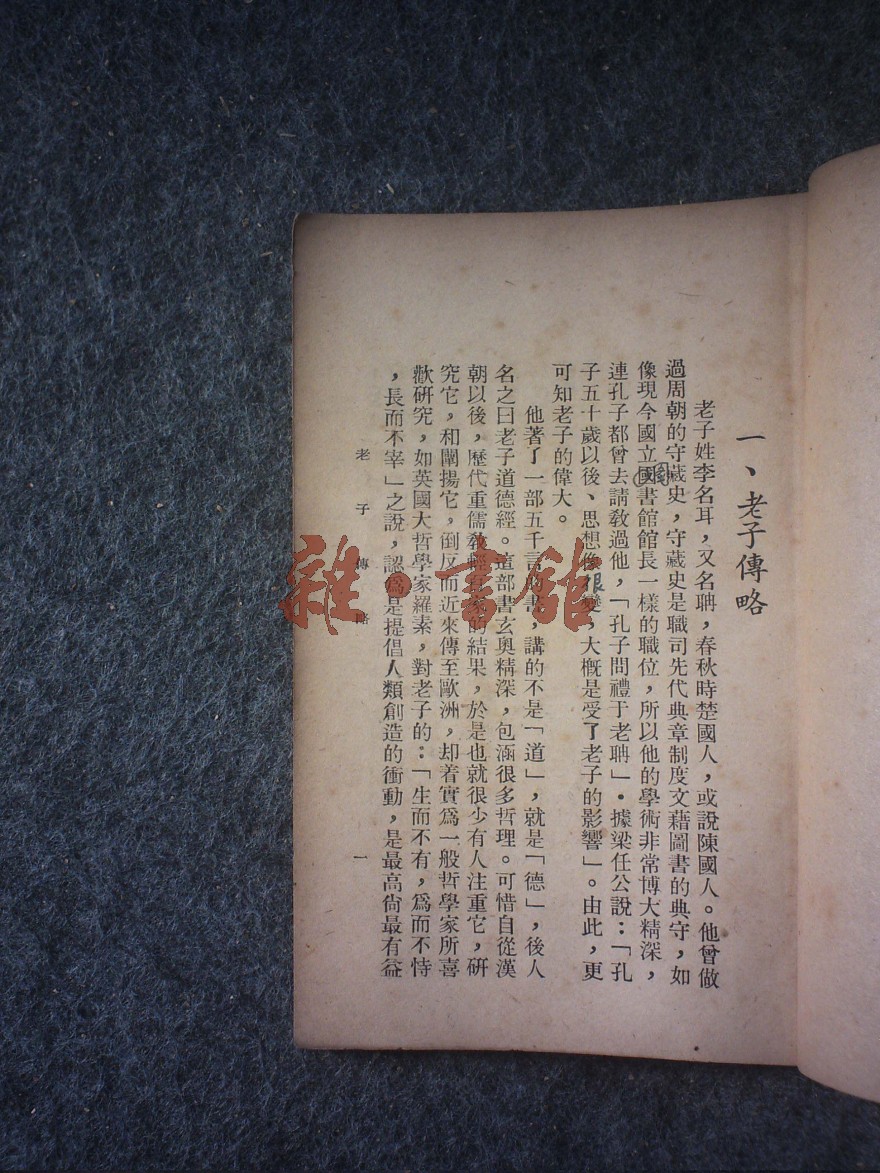 一、老子傳略
老子姓李名耳，又名聃，春秋時楚國人，或說陳國人。他曾做
過周朝的守藏史，守藏史是職司先代典章制度文藉圖書的典守，如
像現今國立國書館館長一樣的職位，所以他的學術非常博大精深，
連孔子都曾去請教過他，「孔子問禮于老聃」．據梁任公說：「孔
子五十歲以後、思想像很變，大概是受了老子的影響」。由此，更
可知老子的偉大。
他著了一部五千言的書，講的不是「道」，就是「德」，後人
名之曰老子道德經。這部書玄奧精深，包涵很多哲理。可惜自從漢
朝以後，歷代重儒教輕百家的結果，於是也就很少有人注重它，研
究它，和闡揚它，倒反而近來傳至歐洲，却着實爲一般哲學家所喜
歡研究，如英國大哲學家羅素，對老子的：「生而不有，爲而不恃
，長而不宰」之說，認爲是提倡人類創造的衝動，是最高尙最有益
老子傳略
一
雜·書館